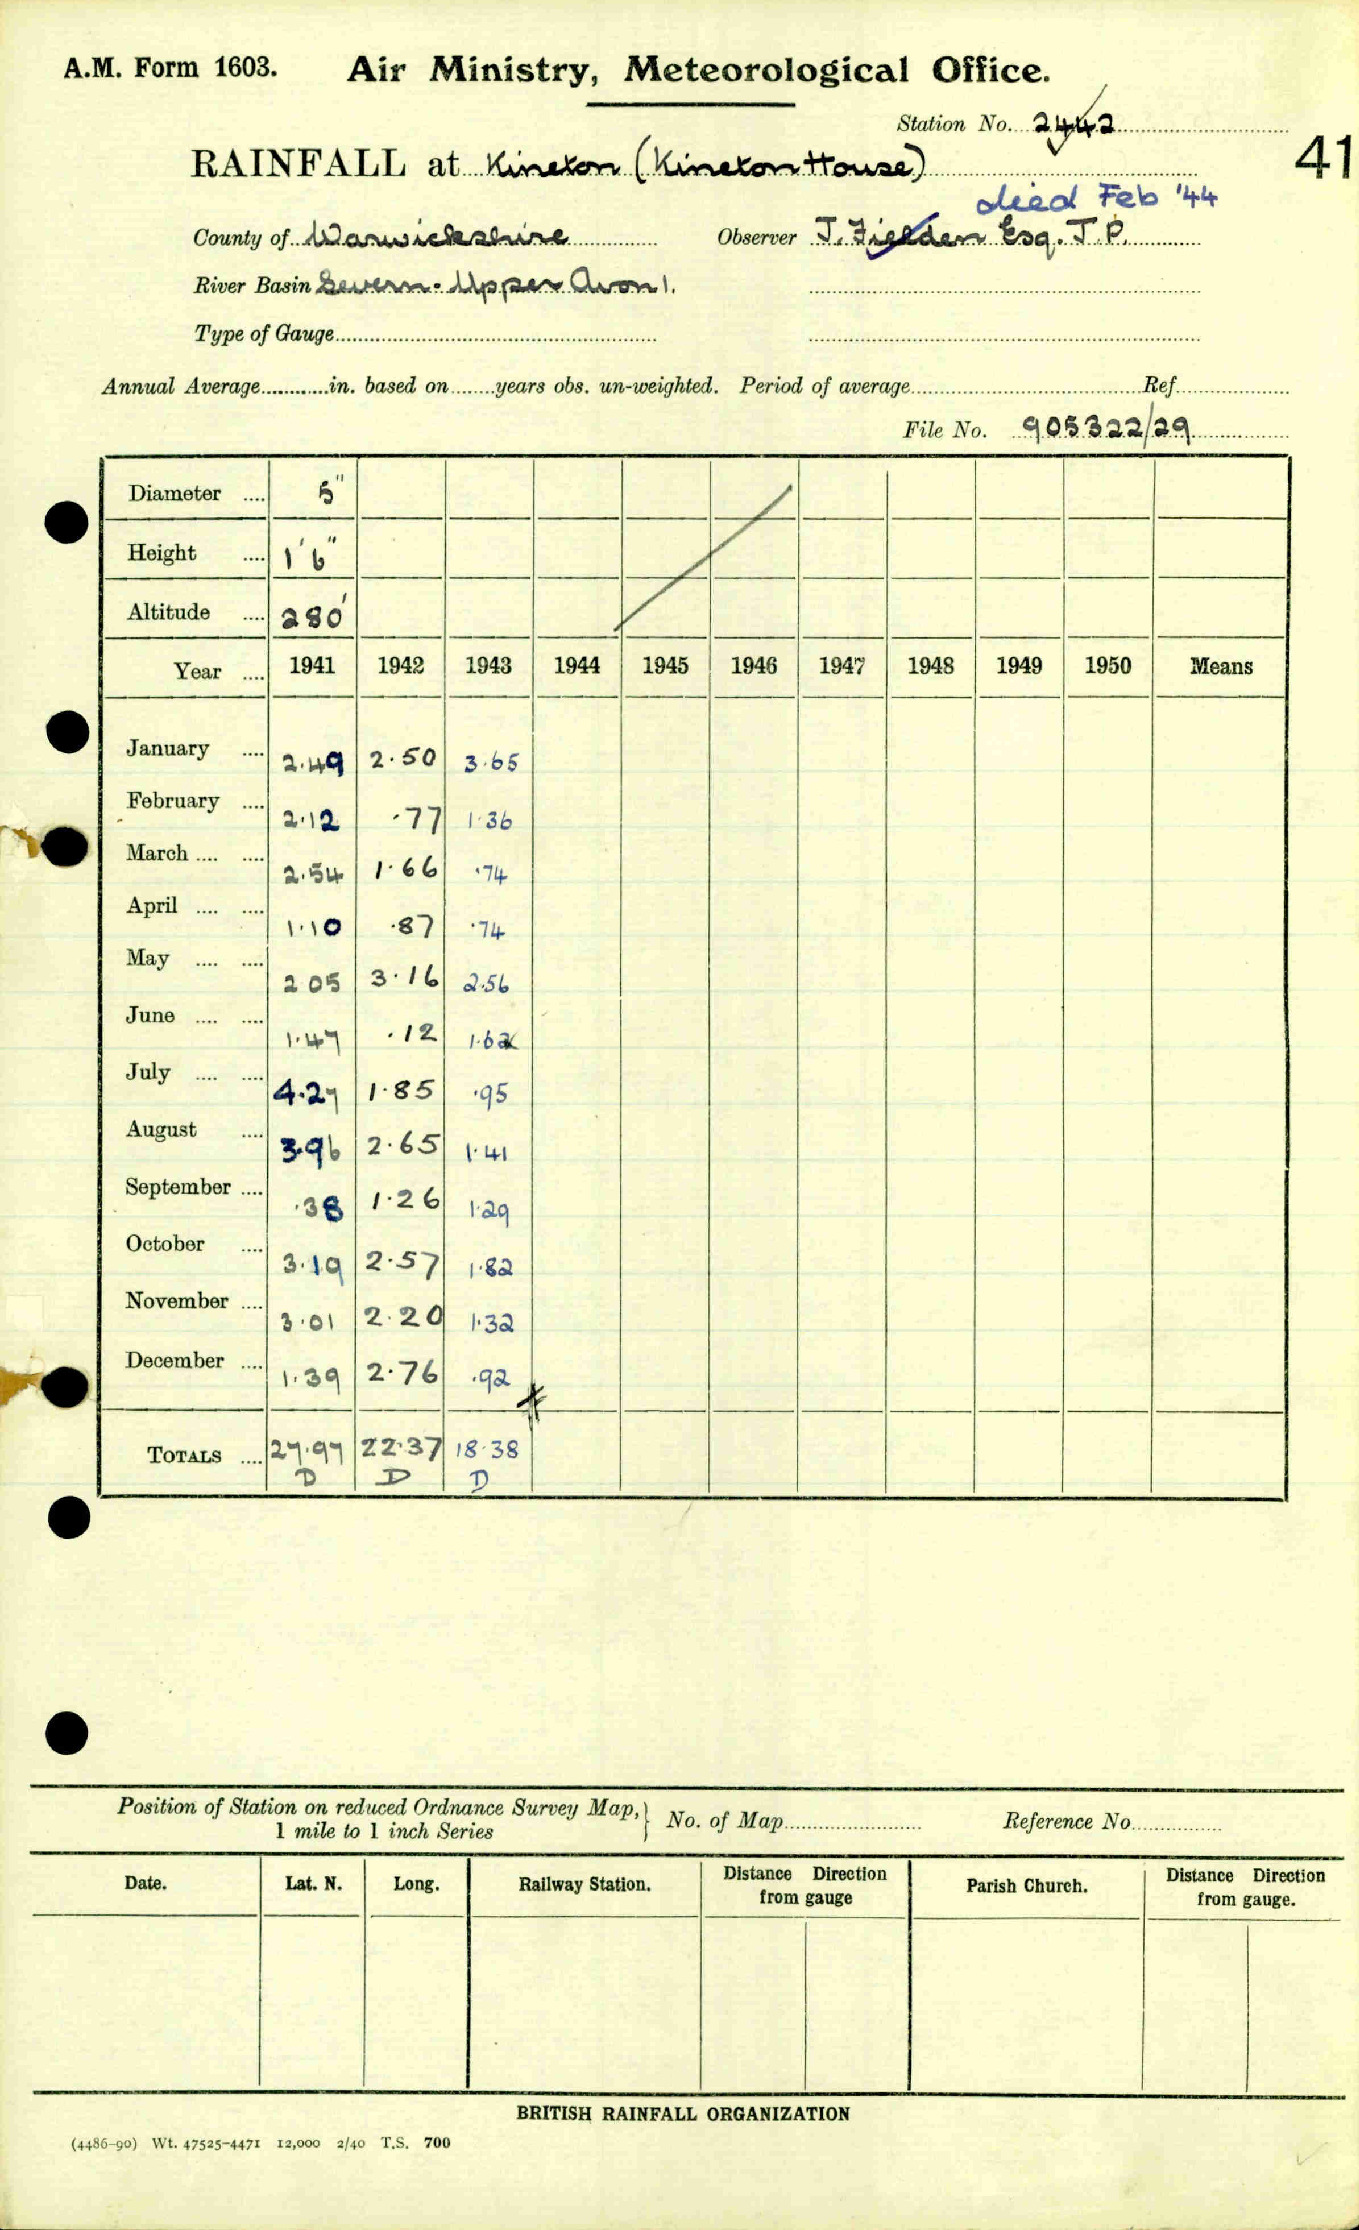 A.M. Form 1603. Air Ministry, Meteorological Office.
Station No. 2442
41
RAINFALL at Kineton (Kineton House)
died Feb '44
County of Warwickshire Observer J. Fielden Esq. J.P.
River Basin Severn - Upper Avon 1.
Type of Gauge
Annual Average in. based on years obs. un-weighted. Period of average Ref.
File No. 905322/29
Diameter .... 5"
Height .... 1'6"
Altitude .... 280'
Year .... 1941 1942 1943 1944 1945 1946 1947 1948 1949 1950 Means
January .... 2.49 2.50 3.65
February .... 2.12 .77 1.36
March .... .... 2.54 1.66 .74
April .... .... 1.10 .87 .74
May .... .... 2 05 3.16 2.56
June .... .... 1.47 .12 1.62
July .... .... 4.27 1.85 .95
August .... 3.96 2.65 1.41
September .... .38 1.26 1.29
October .... 3.19 2.57 1.82
November .... 3.01 2.20 1.32
December .... 1.39 2.76 .92
TOTALS .... 27.97 22.37 18.38
D D D
Position of Station on reduced Ordnance Survey Map,} No. of Map Reference No.
1 mile to 1 inch Series
Date. Lat. N. Long. Railway Station. Distance Direction from gauge Parish Church. Distance Direction from gauge.
BRITISH RAINFALL ORGANIZATION
(4486-90) Wt. 47525-4471 12,000 2/40 T.S. 700